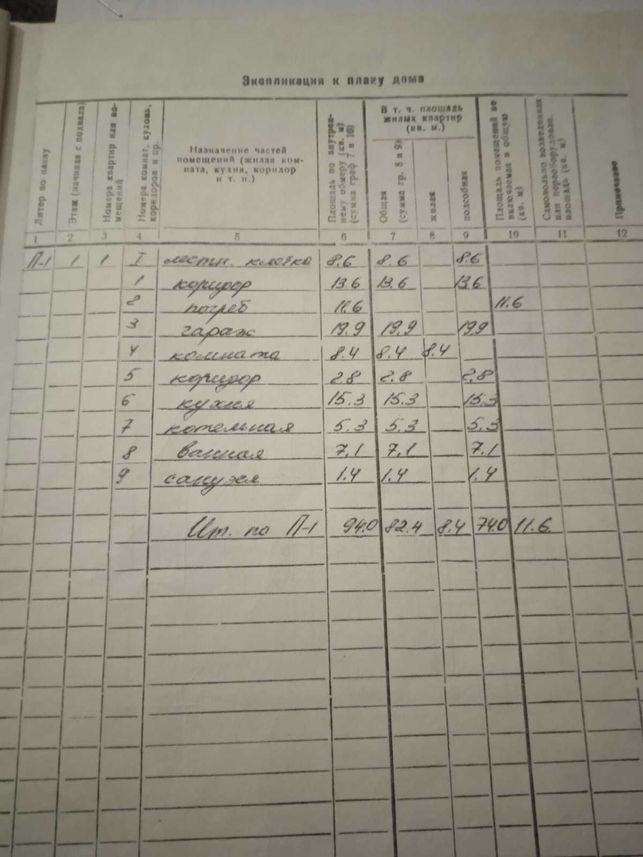 Экспликация к плану дома
Литер по плану
Этаж (начиная с подвала)
Номера квартир или помещений
Номера комнат, кухонь, коридоров и пр.
Назначение частей
помещений (жилая ком-
ната, кухня, коридор
и т. п.)
Площадь по внутрен-
нему обмеру (кв. м)
(сумма граф 7 и 10)
В т. ч. площадь
жилых квартир
(кв. м.)
Общая
(сумма гр. 8 и 9)
жилая
подсобная
Площадь помещений не
включаемая в общую
(кв. м)
Самовольно возведенная
или переоборудован.
площадь (кв. м)
Примечание
1 2 3 4 5 6 7 8 9 10 11 12
П-1 1 1 I лестн. клетка 8.6 8.6 8.6
1 коридор 13.6 13.6 13.6
2 погреб 11.6 11.6
3 гараж 19.9 19.9 19.9
4 комната 8.4 8.4 8.4
5 коридор 2.8 2.8 2.8
6 кухня 15.3 15.3 15.3
7 котельная 5.3 5.3 5.3
8 ванная 7.1 7.1 7.1
9 санузел 1.4 1.4 1.4
Ит. по П-1 94.0 82.4 8.4 74.0 11.6